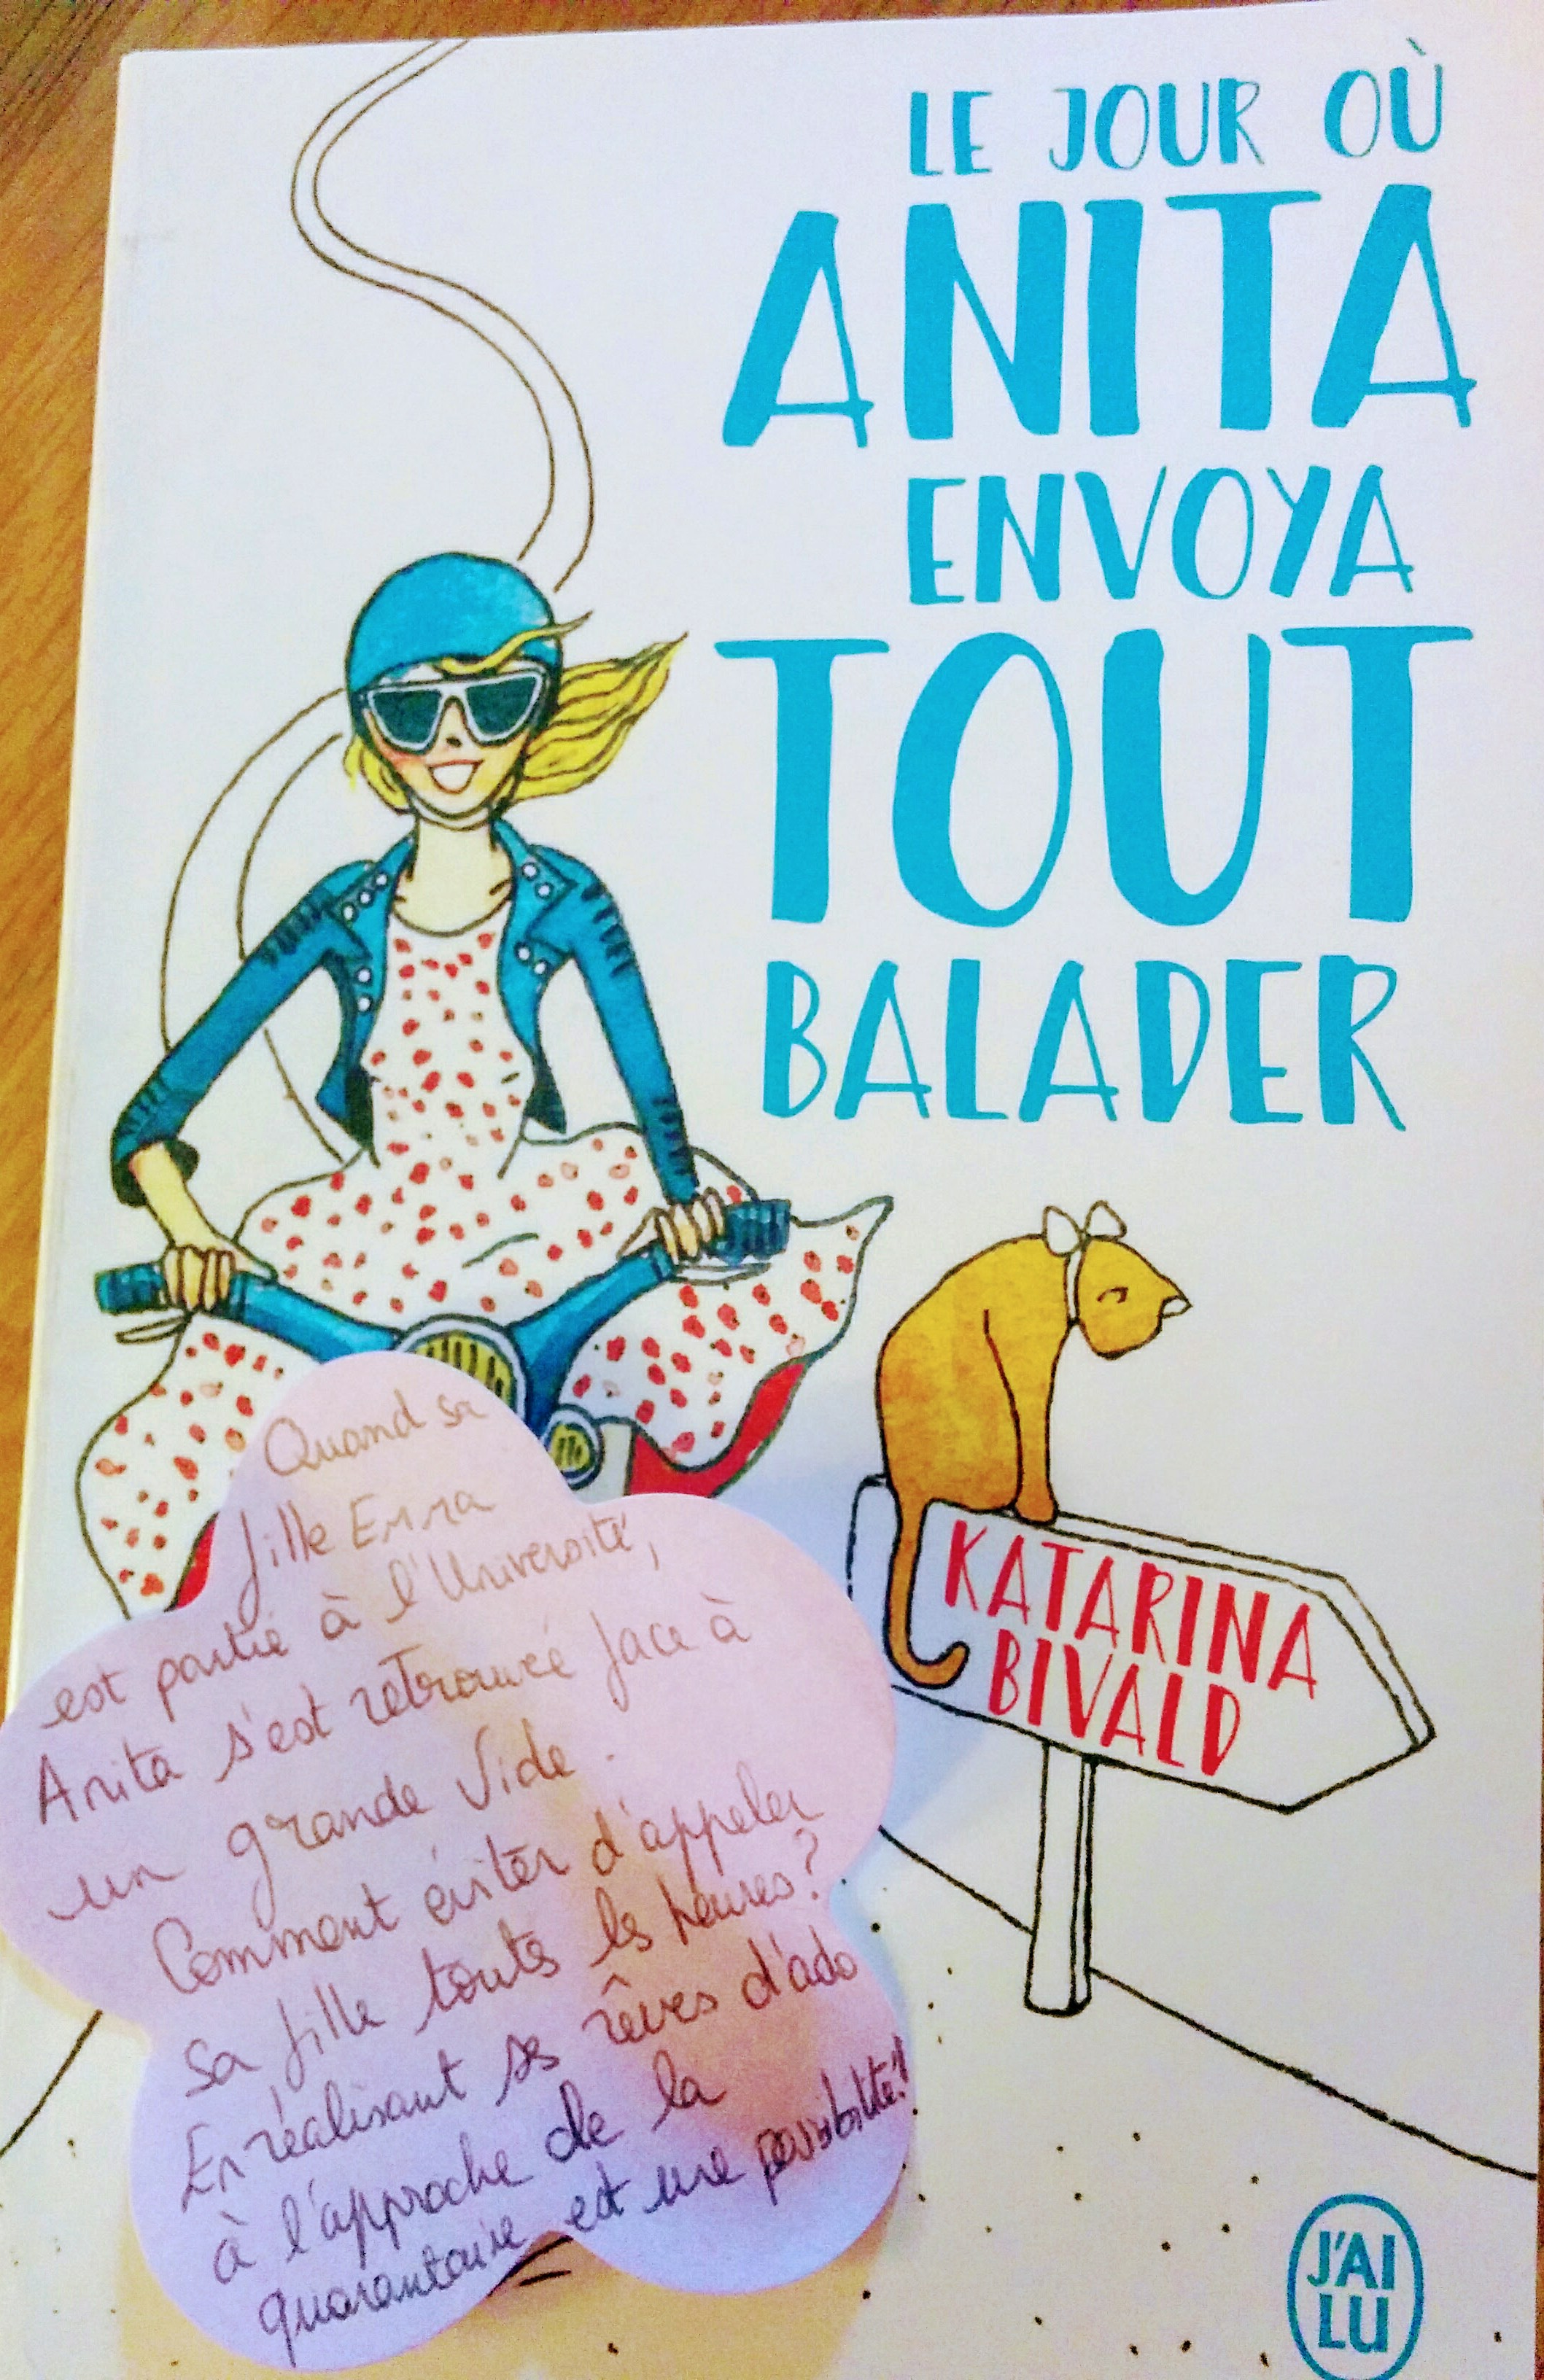 LE JOUR OÙ
ANITA
ENVOYA
TOUT
BALADER
KATARINA
BIVALD
Quand sa
fille Emma
est partie à l'Université,
Anita s'est retrouvée face à
un grande Vide.
Comment éviter d'appeler
sa fille toutes les heures?
En réalisant ses rêves d'ado
à l'approche de la
quarantaine est une possibilité!
J'AI
LU